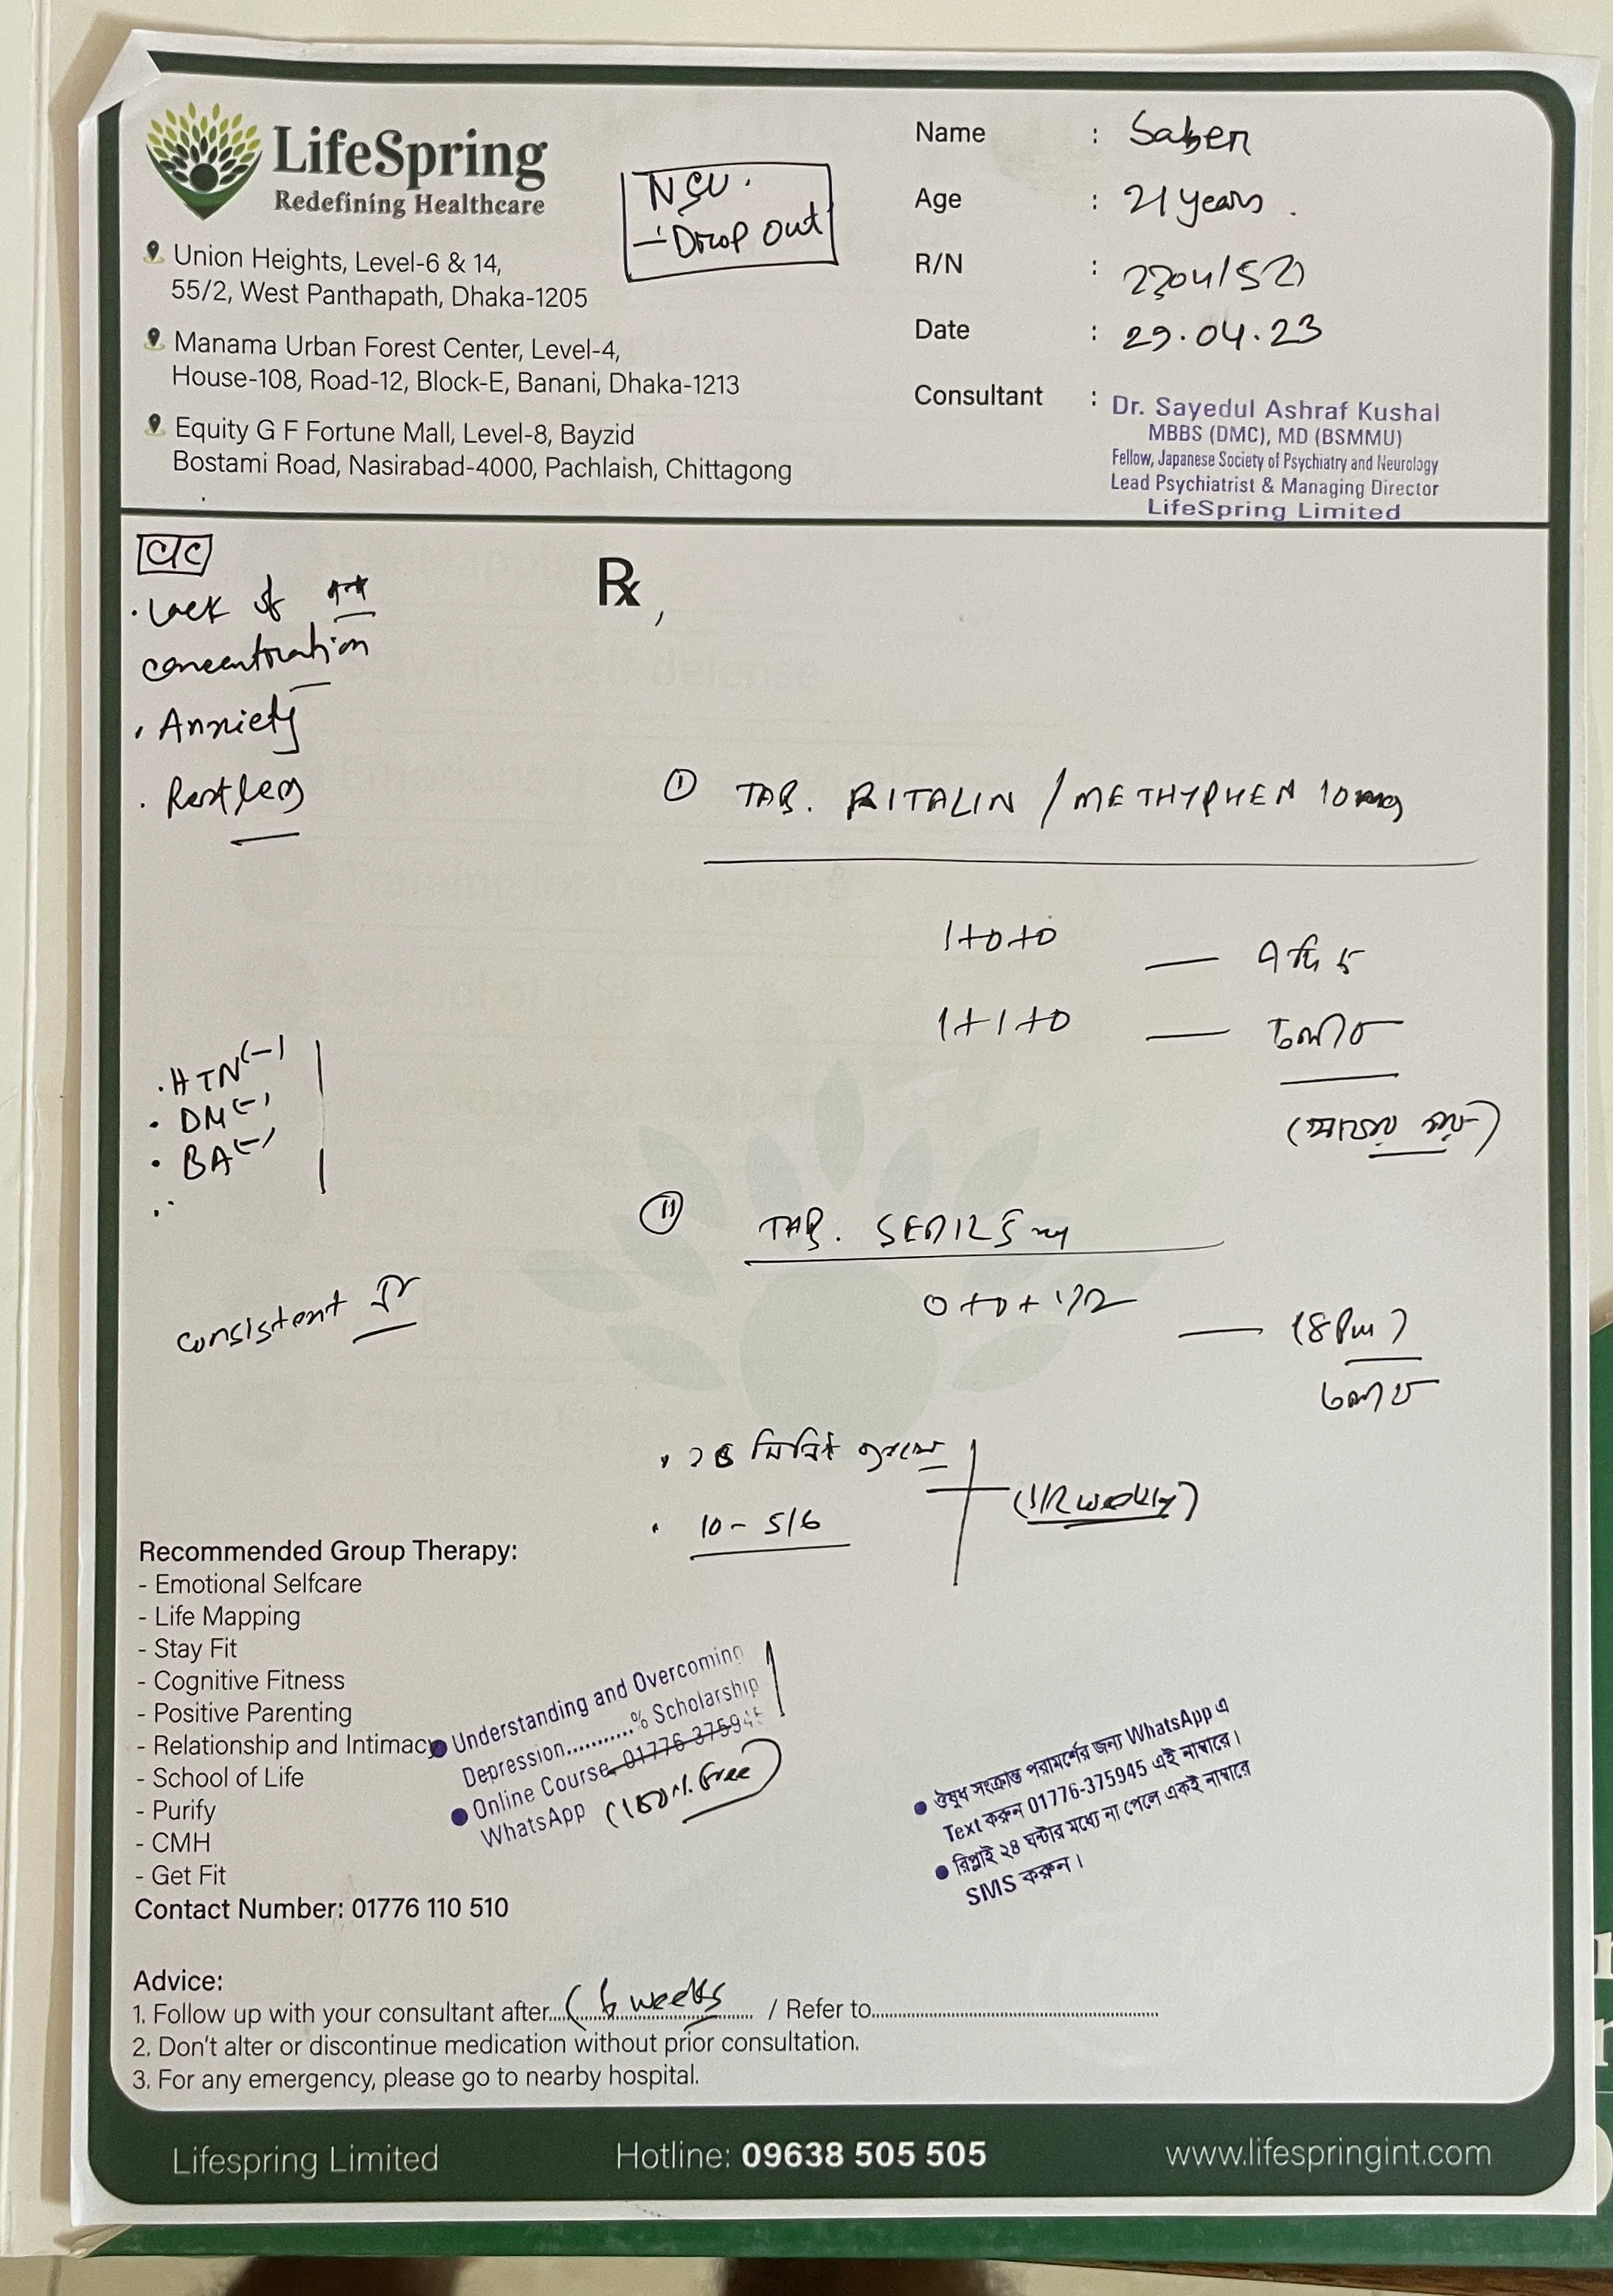 LifeSpring
Redefining Healthcare
Union Heights, Level-6 & 14,
55/2, West Panthapath, Dhaka-1205
Manama Urban Forest Center, Level-4,
House-108, Road-12, Block-E, Banani, Dhaka-1213
Equity G F Fortune Mall, Level-8, Bayzid
Bostami Road, Nasirabad-4000, Pachlaish, Chittagong
NSU.
- Drop out
Name : Saber
Age : 21 years.
R/N :
Date : 29.04.23
Consultant : Dr. Sayedul Ashraf Kushal
MBBS (DMC), MD (BSMMU)
Fellow, Japanese Society of Psychiatry and Neurology
Lead Psychiatrist & Managing Director
LifeSpring Limited
C/C
· Lack of
concentration
· Anxiety
· Restless
· HTN (-)
· DM (-)
· BA (-)
consistent
Rx,
① TAB. RITALIN / METHYPHEN 10mg
1+0+0 —
1+1+0 — চলবে
② TAB. SEDIL 5mg
0+0+1/2 — (8 Pm)
চলবে
· 10 - 5/6
Recommended Group Therapy:
- Emotional Selfcare
- Life Mapping
- Stay Fit
- Cognitive Fitness
- Positive Parenting
- Relationship and Intimacy
- School of Life
- Purify
- CMH
- Get Fit
Contact Number: 01776 110 510
● Understanding and Overcoming
Depression...........% Scholarship
● Online Course 01776-375945
WhatsApp (100% Free)
● ঔষুধ সংক্রান্ত পরামর্শের জন্য WhatsApp এ
Text করুন 01776-375945 এই নাম্বারে।
● রিপ্লাই ২৪ ঘন্টার মধ্যে না পেলে একই নাম্বারে
SMS করুন।
Advice:
1. Follow up with your consultant after....(6 weeks.......... / Refer to..........
2. Don't alter or discontinue medication without prior consultation.
3. For any emergency, please go to nearby hospital.
Lifespring Limited
Hotline: 09638 505 505
www.lifespringint.com